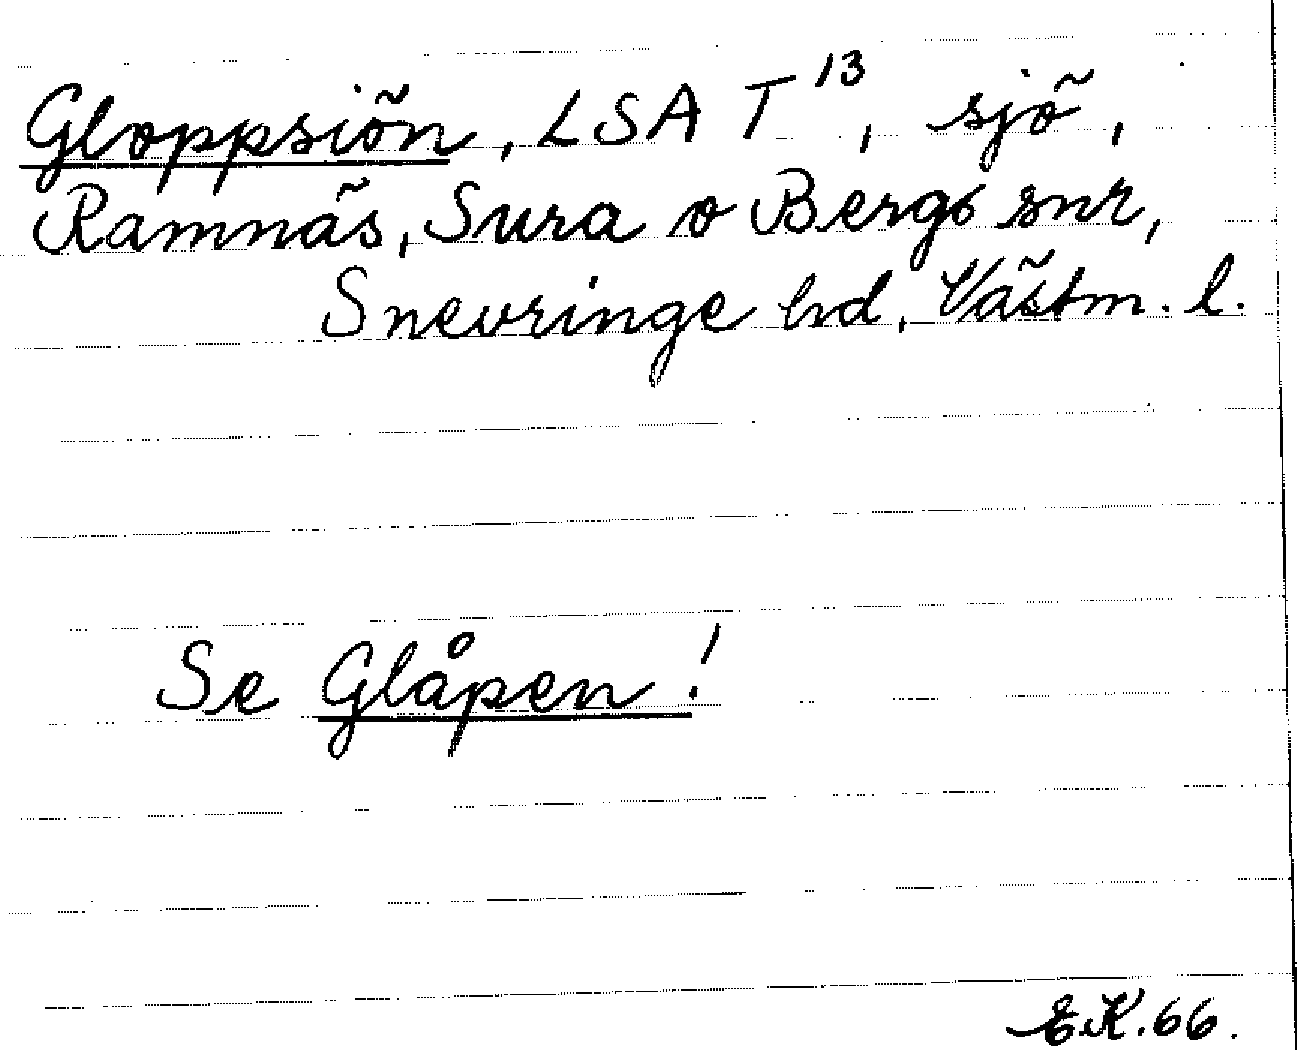 Gloppsiön, LSA T 13, sjö,
Ramnäs, Sura o Bergs snr,
Snevringe hd, Västm. l.
Se Glåpen!
E.K. 66.